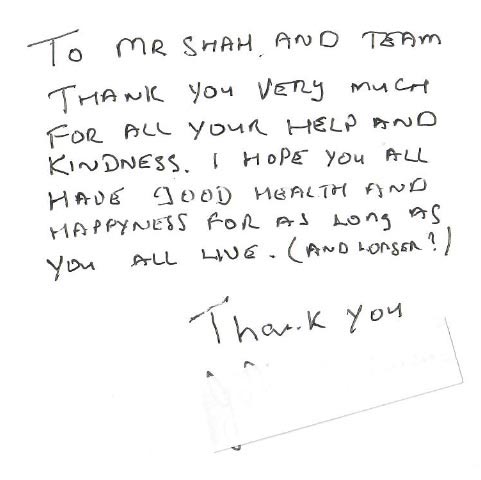 To MR SHAH, AND TEAM
THANK YOU VERY MUCH
FOR ALL YOUR HELP AND
KINDNESS. I HOPE YOU ALL
HAVE GOOD HEALTH AND
HAPPYNESS FOR AS LONG AS
YOU ALL LIVE. (AND LONGER?)
Thank you